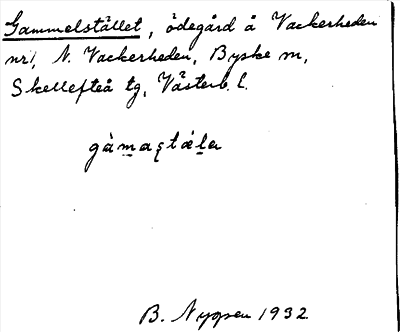 Gammelstället, ödegård å Vackerheden
nr 1, N. Vackerheden, Byske m,
Skellefteå tg, Västerb. l.
B. Nygren 1932